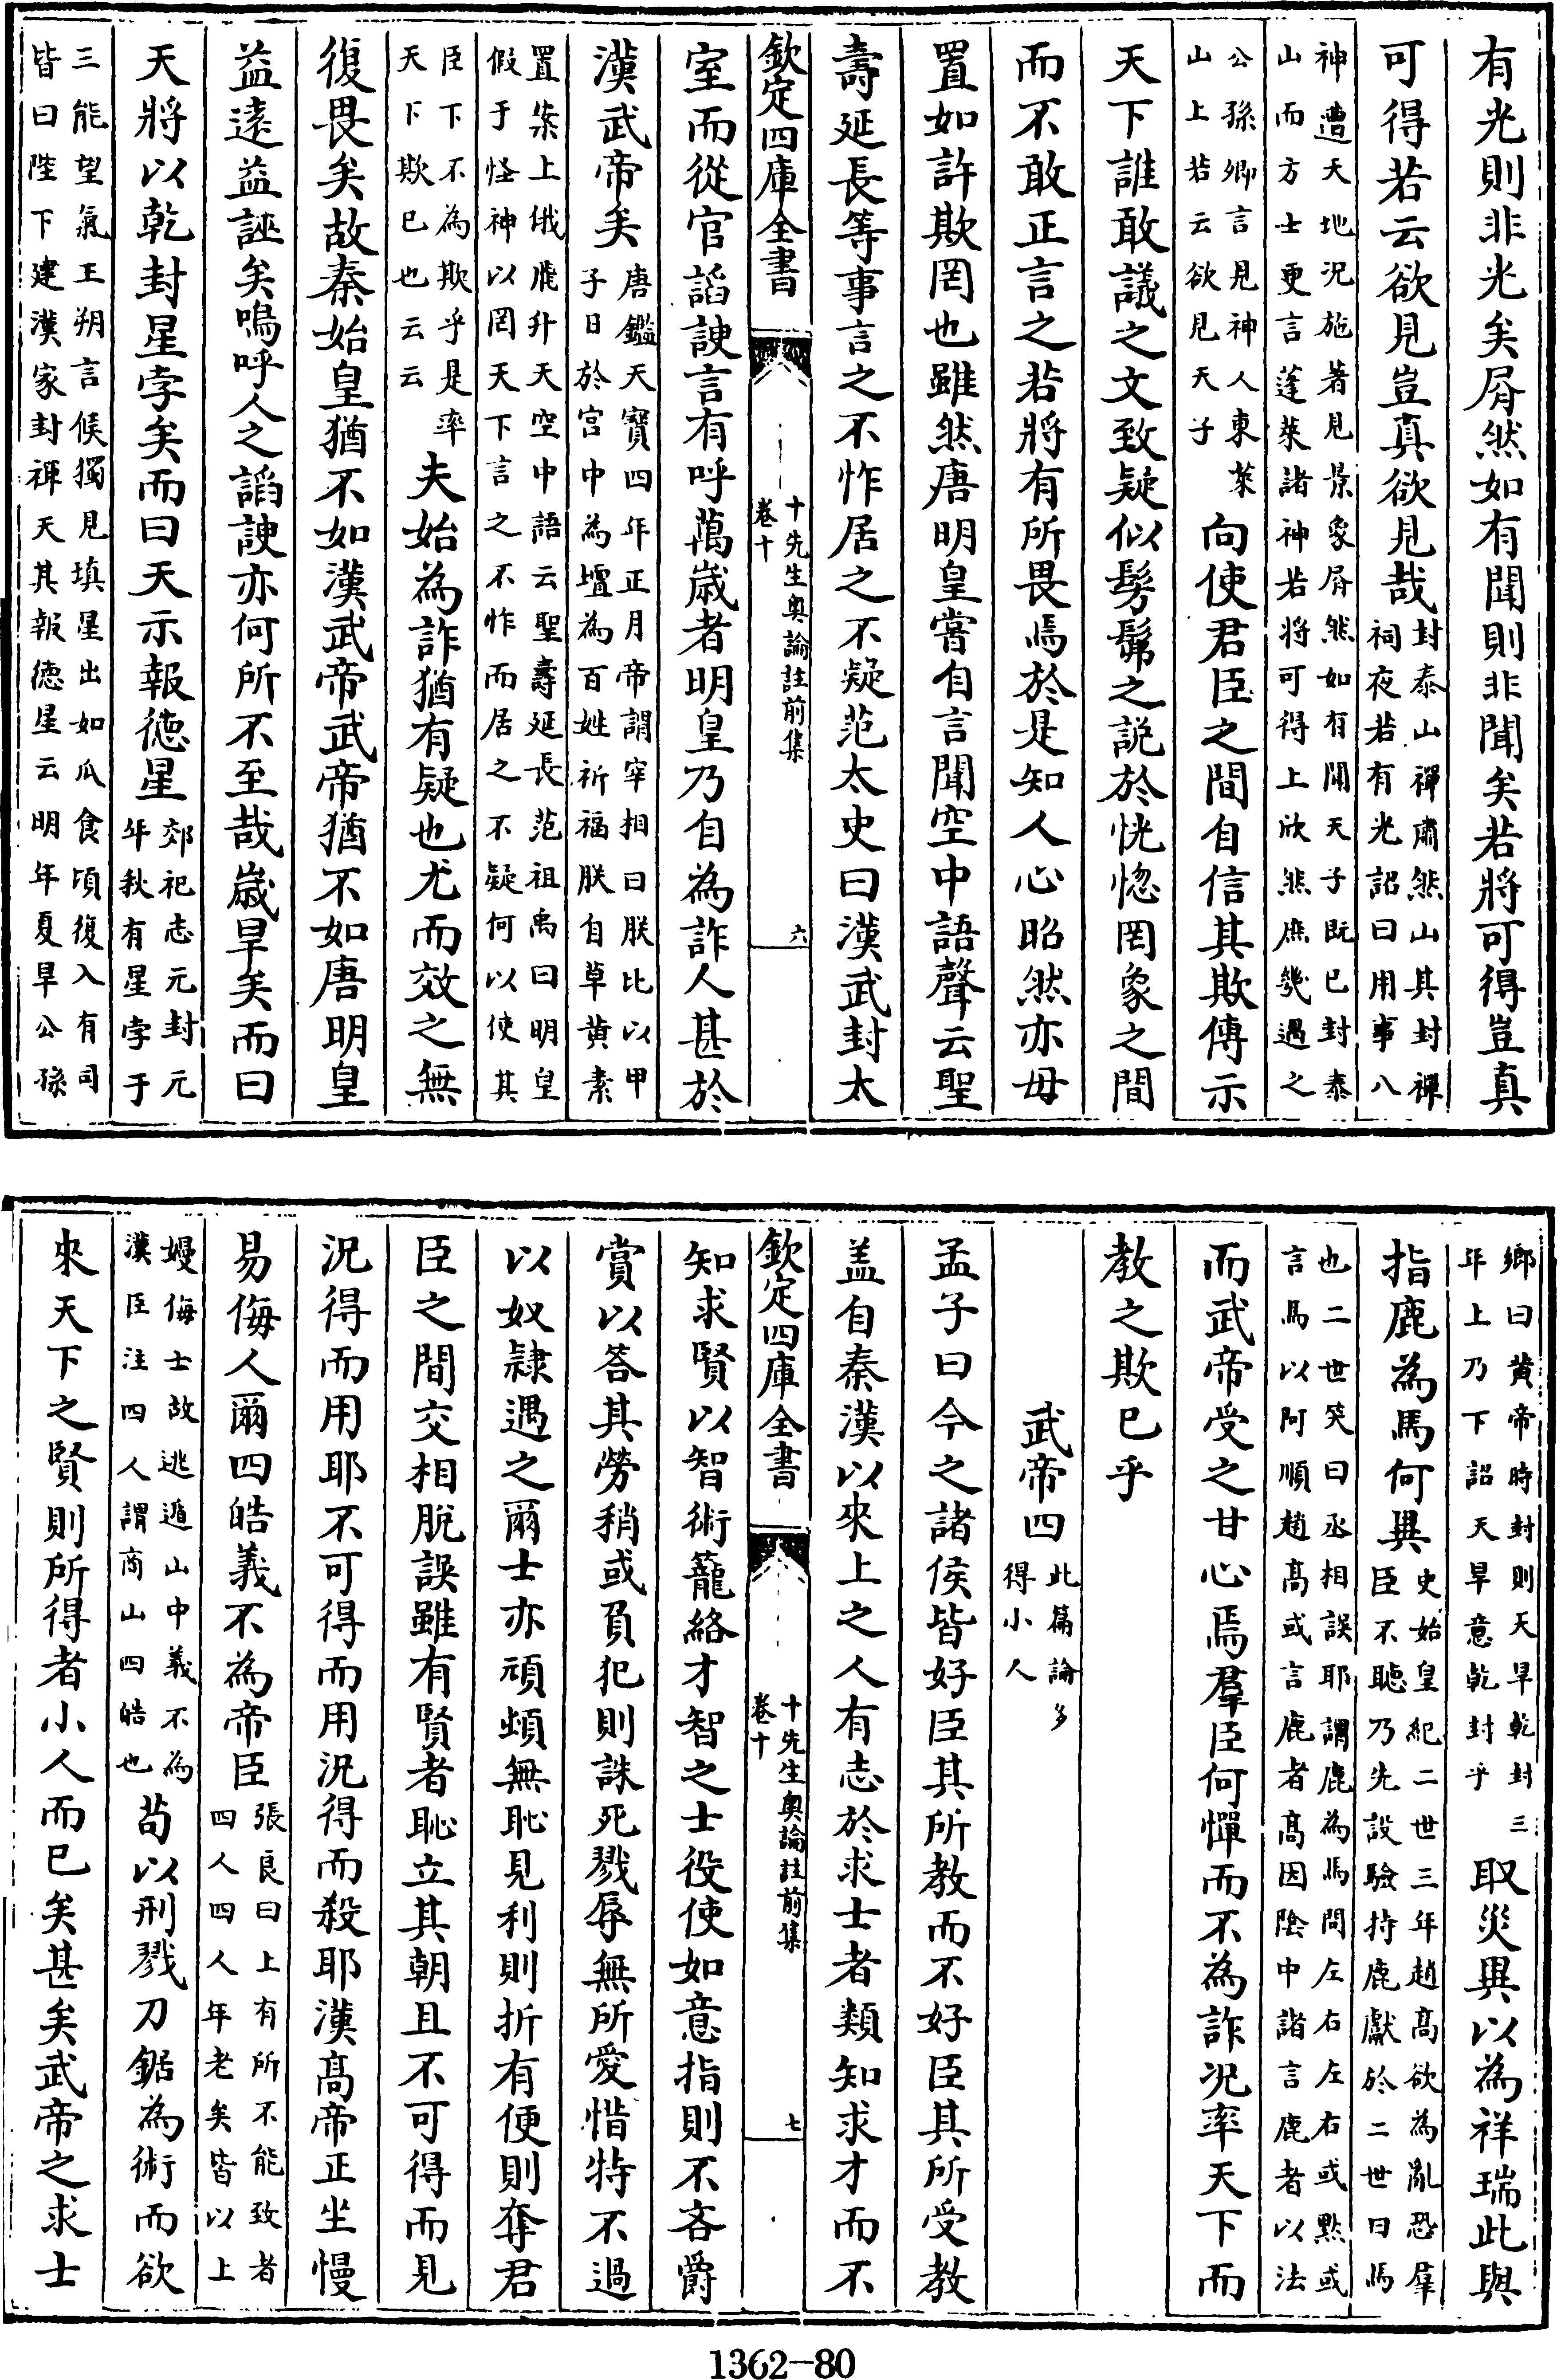 有光則非光矣屑然如有聞則非聞矣若將可得豈真
可得若云欲見豈真欲見哉
封泰山禪肅然山其封禪
祠夜若有光詔曰用事八
神遭天地況施著見景象屑然如有聞天子既已封泰
山而方士更言蓬萊諸神若將可得上欣然庶幾遇之
公孫卿言見神人東萊
山上若云欲見天子
向使君臣之間自信其欺傳示
天下誰敢議之文致疑似髣髴之説於恍惚罔象之間
而不敢正言之若將有所畏焉於是知人心昭然亦毋
置如許欺罔也雖然唐明皇嘗自言聞空中語聲云聖
壽延長等事言之不怍居之不疑范太史曰漢武封太
欽定四庫全書
十先生奥論註前集
卷十
六
室而從官諂諛言有呼萬嵗者明皇乃自為詐人甚於
漢武帝矣
唐鑑天寳四年正月帝謂宰相曰朕比以甲
子日於宫中為壇為百姓祈福朕自草黄素
置案上俄飛升天空中語云聖壽延長范祖禹曰明皇
假于怪神以罔天下言之不怍而居之不疑何以使其
臣下不為欺乎是率
天下欺已也云云
夫始為詐猶有疑也尤而效之無
復畏矣故秦始皇猶不如漢武帝武帝猶不如唐明皇
益逺益誣矣嗚呼人之諂諛亦何所不至哉嵗旱矣而曰
天將以乾封星孛矣而曰天示報徳星
郊祀志元封元
年秋有星孛于
三能望氣王朔言候獨見填星出如瓜食頃復入有司
皆曰陛下建漢家封禪天其報徳星云明年夏旱公孫
鄉曰黄帝時封則天旱乾封三
年上乃下詔天旱意乾封乎
取災異以為祥瑞此與
指鹿為馬何異
史始皇紀二世三年趙髙欲為亂恐羣
臣不聽乃先設驗持鹿獻於二世曰馬
也二世笑曰丞相誤耶謂鹿為馬問左右左右或黙或
言馬以阿順趙髙或言鹿者髙因陰中諸言鹿者以法
而武帝受之甘心焉羣臣何憚而不為詐况率天下而
教之欺已乎
武帝四
此篇論多
得小人
孟子曰今之諸侯皆好臣其所教而不好臣其所受教
盖自秦漢以來上之人有志於求士者類知求才而不
欽定四庫全書
十先生奥論註前集
卷十
七
知求賢以智術籠絡才智之士役使如意指則不吝爵
賞以答其勞稍或負犯則誅死戮辱無所愛惜特不過
以奴隷遇之爾士亦頑頑無恥見利則折有便則奪君
臣之間交相脱誤雖有賢者恥立其朝且不可得而見
況得而用耶不可得而用況得而殺耶漢髙帝正坐慢
易侮人爾四皓義不為帝臣
張良曰上有所不能致者
四人四人年老矣皆以上
嫚侮士故逃遁山中義不為
漢臣注四人謂商山四皓也
茍以刑戮刀鋸為術而欲
來天下之賢則所得者小人而已矣甚矣武帝之求士
1362-80